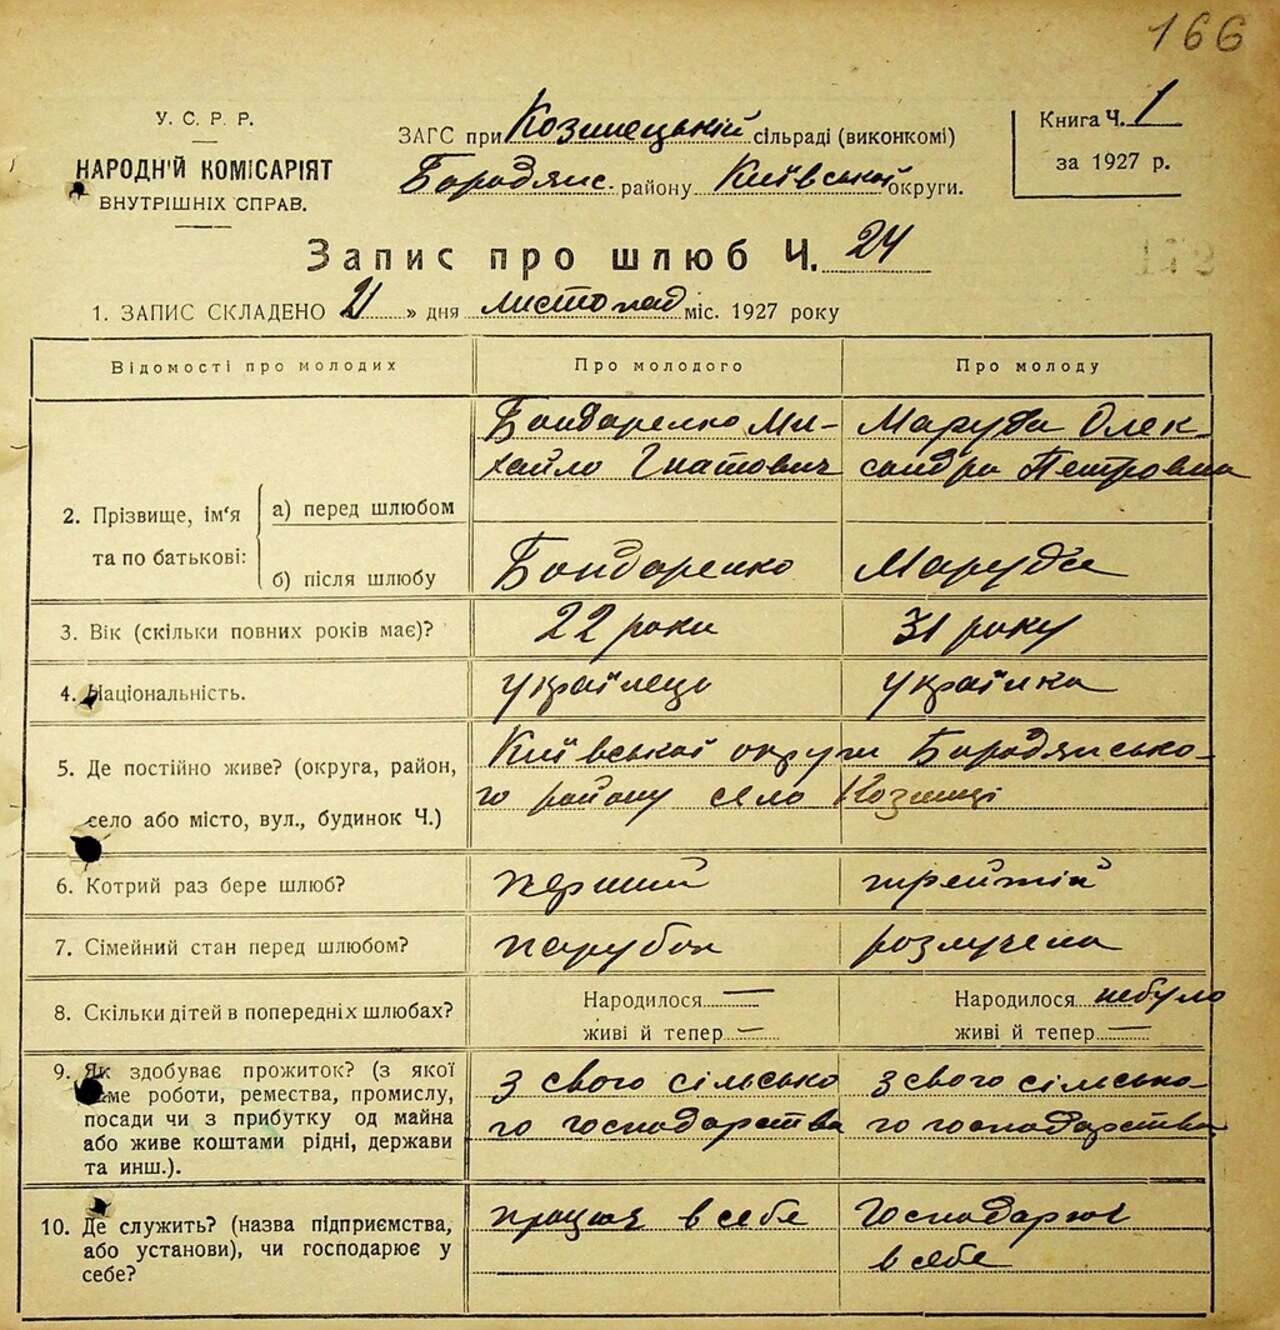 166
У. С. Р. Р.
НАРОДНІЙ КОМІСАРІЯТ
ВНУТРІШНІХ СПРАВ.
ЗАГС при Козинецькій сільраді (виконкомі)
Бородянс. району Київської округи.
Книга Ч. 1
за 1927 р.
Запис про шлюб Ч. 24
1. ЗАПИС СКЛАДЕНО 21 » дня листопад міс. 1927 року
Відомості про молодих Про молодого Про молоду
2. Прізвище, ім‘я та по батькові:
а) перед шлюбом
Бондаренко Ми-
хайло Гнатович
Маруда Олек-
сандра Петровна
б) після шлюбу
Бондаренко
Маруда
3. Вік (скільки повних років має)?
22 роки
31 року
4. Національність.
українець
українка
5. Де постійно живе? (округа, район,
село або місто, вул., будинок Ч.)
Київської округи Бородянсько-
го району село Козинці
6. Котрий раз бере шлюб?
перший
трейтій
7. Сімейний стан перед шлюбом?
парубок
розлучена
8. Скільки дітей в попередніх шлюбах?
Народилося —
живі й тепер —
Народилося небуло
живі й тепер —
9. Як здобуває прожиток? (з якої
саме роботи, ремества, промислу,
посади чи з прибутку од майна
або живе коштами рідні, держави
та инш.).
з свого сільсько
го господарства
з свого сільсько-
го господарства
10. Де служить? (назва підприємства,
або установи), чи господарює у
себе?
працює в себе
Господарює
в себе